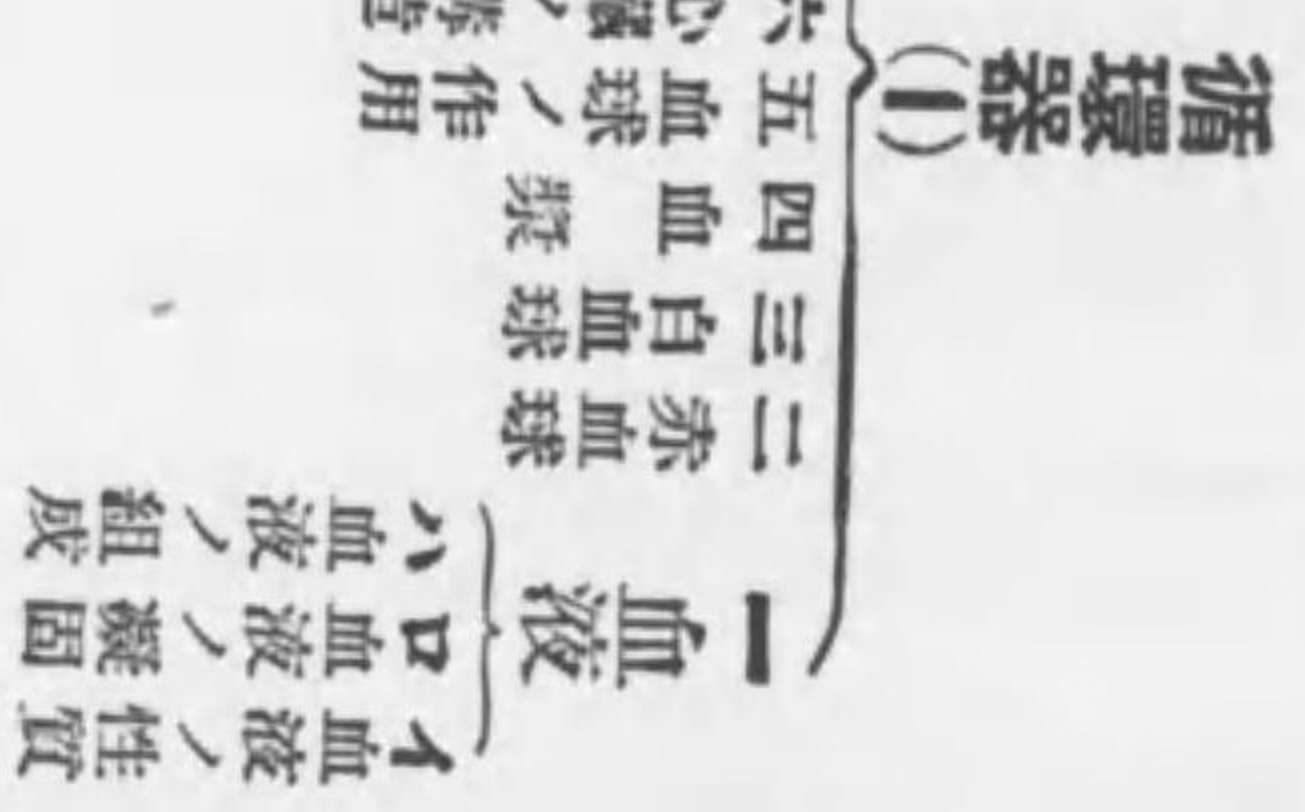 循環器(I)
一 血液
イ 血液ノ性質
ロ 血液ノ凝固
ハ 血液ノ組成
二 赤血球
三 白血球
四 血漿
五 血球ノ作用
六 心臟ノ